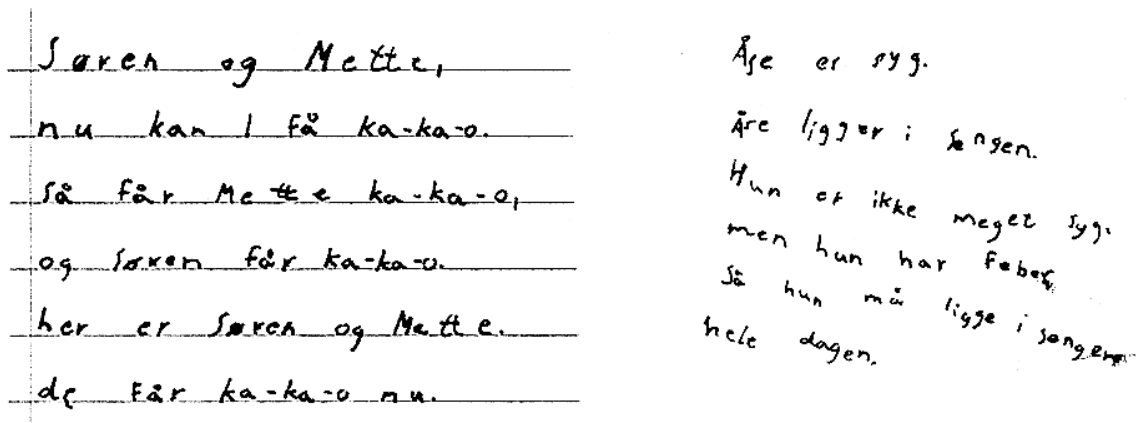 Søren og Mette,
nu kan I få ka-ka-o.
Så får Mette ka-ka-o,
og Søren får ka-ka-o.
her er Søren og Mette.
de Får ka-ka-o nu.
Åse er syg.
Åse ligger i sengen.
Hun er ikke meget syg.
men hun har feber,
Så hun må ligge i sengen
hele dagen.